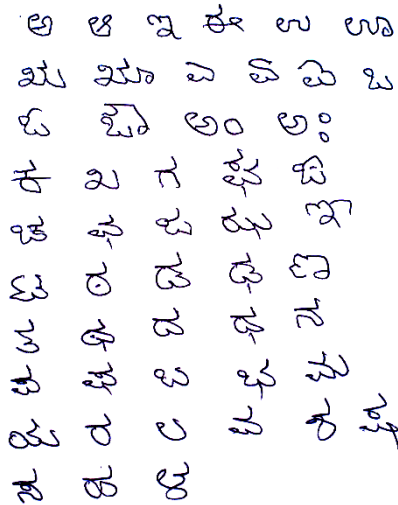 ಅ ಆ ಇ ಈ ಉ ಊ
ಋ ೠ ಎ ಏ ಐ ಒ
ಓ ಔ ಅಂ ಅಃ
ಕ ಖ ಗ ಘ ಙ
ಚ ಛ ಜ ಝ ಞ
ಟ ಠ ಡ ಢ ಣ
ತ ಥ ದ ಧ ನ
ಪ ಫ ಬ ಭ ಮ
ಯ ರ ಲ ವ ಶ ಷ
ಸ ಹ ಳ